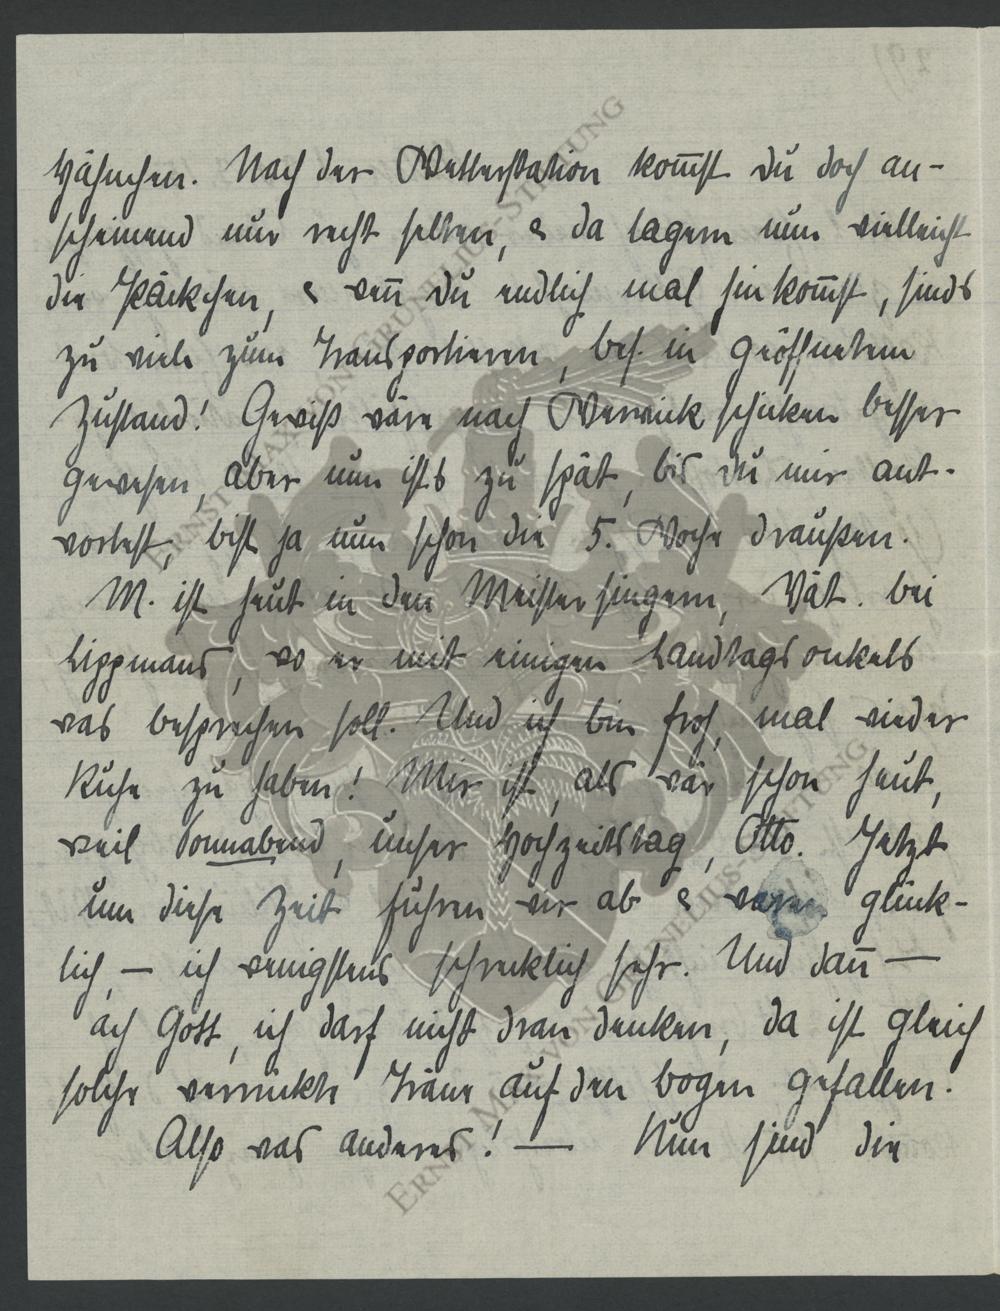 Hähnchen. Nach der Wetterstation kom̄st du doch an-
scheinend nur recht selten, & da lagern nun vielleicht
die Päckchen, & wen̄ du endlich mal hinkom̄st, sinds
zu viele zum Transportieren, bes. in geöffnetem
Zustand! Gewiß wäre nach Werwick schicken besser
gewesen, aber nun ists zu spät, bis du mir ant-
wortest, bist ja nun schon die 5. Woche draußen.
M. ist heut in den Meistersingern, Vat. bei
Lippmans, wo er mit einigen Landtagsonkels
was besprechen soll. Und ich bin froh, mal wieder
Ruhe zu haben! Mir ist, als wär schon heut,
weil Sonnabend, unser Hochzeitstag, Otto. Jetzt
um diese Zeit fuhren wir ab & waren glück-
lich, — ich wenigstens schrecklich sehr. Und dan̄ —
ach Gott, ich darf nicht dran denken, da ist gleich
solche verrückte Träne auf den bogen gefallen.
Also was anderes! — Nun sind die
ERNST MAX VON GRUNELIUS-STIFTUNG
ERNST MAX VON GRUNELIUS-STIFTUNG